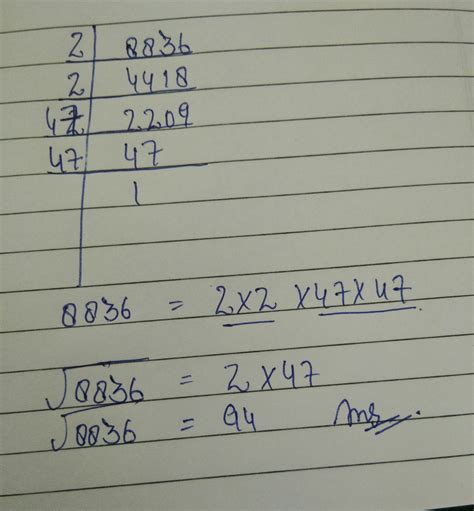 2 | 8836
2 | 4418
47 | 2209
47 | 47
| 1
8836 = 2×2 ×47×47
√8836 = 2×47
√8836 = 94 Ans.